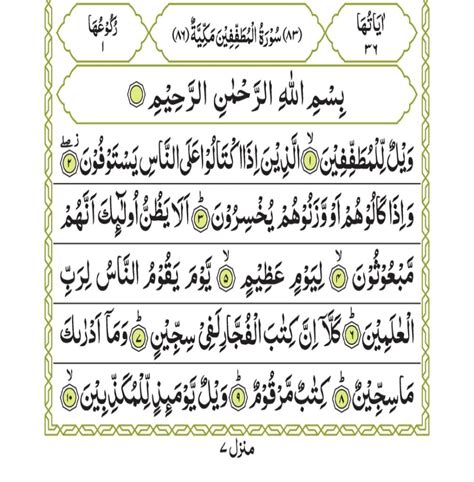 اٰيَاتُهَا ٣٦
(٨٣) سُوْرَةُ الْمُطَفِّفِيْنَ مَكِّيَّةٌ (٨٦)
رُكُوْعُهَا ١
بِسْمِ اللّٰهِ الرَّحْمٰنِ الرَّحِيْمِ
وَيْلٌ لِّلْمُطَفِّفِيْنَ ۙ‏ ١ الَّذِيْنَ اِذَا اكْتَالُوْا عَلَى النَّاسِ يَسْتَوْفُوْنَ ۖ ٢
وَاِذَا كَالُوْهُمْ اَوْ وَّزَنُوْهُمْ يُخْسِرُوْنَ ؕ ٣ اَلَا يَظُنُّ اُولٰٓئِكَ اَنَّهُمْ
مَّبْعُوْثُوْنَ ۙ ٤ لِيَوْمٍ عَظِيْمٍ ۙ ٥ يَّوْمَ يَقُوْمُ النَّاسُ لِرَبِّ
الْعٰلَمِيْنَ ؕ ٦ كَلَّاۤ اِنَّ كِتٰبَ الْفُجَّارِ لَفِيْ سِجِّيْنٍ ؕ ٧ وَمَاۤ اَدْرٰىكَ
مَا سِجِّيْنٌ ؕ ٨ كِتٰبٌ مَّرْقُوْمٌ ؕ ٩ وَيْلٌ يَّوْمَئِذٍ لِّلْمُكَذِّبِيْنَ ۙ ١٠
منزل ٧